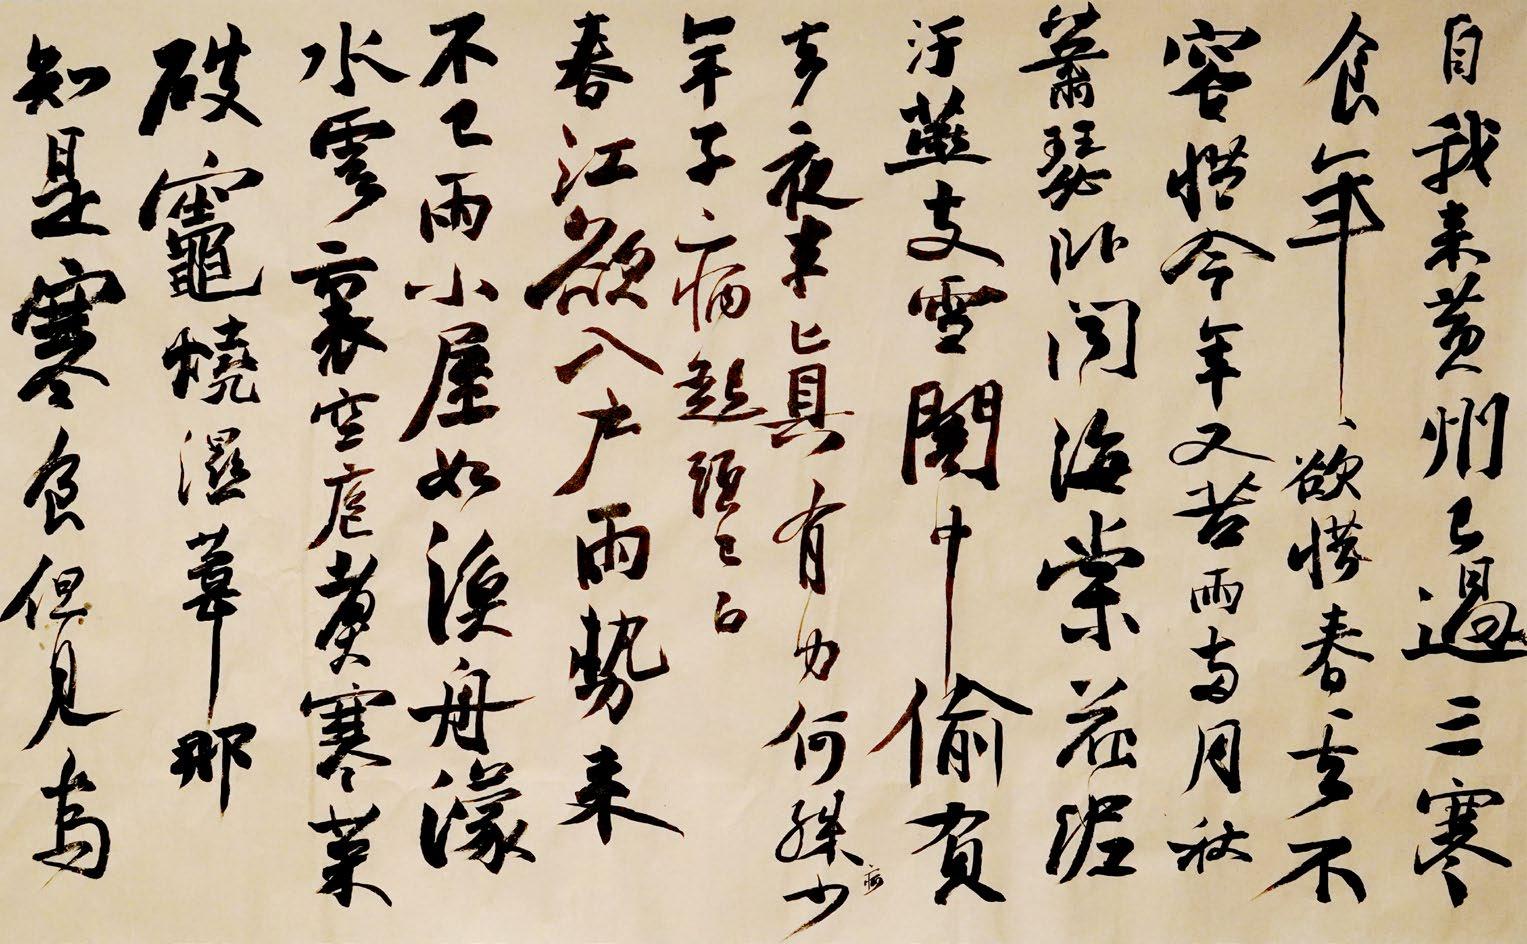 自我来黄州已過三寒
食年、欲惜春去不
容惜今年又苦雨两月秋
蕭瑟卧闻海棠花泥
汙燕支雪闇中偷負
去夜半眞有力何殊病少
年子病起須已白
春江欲入户雨勢来
不已雨小屋如漁舟濛
水雲裏空庖煮寒菜
破竈燒濕葦那
知是寒食但見烏